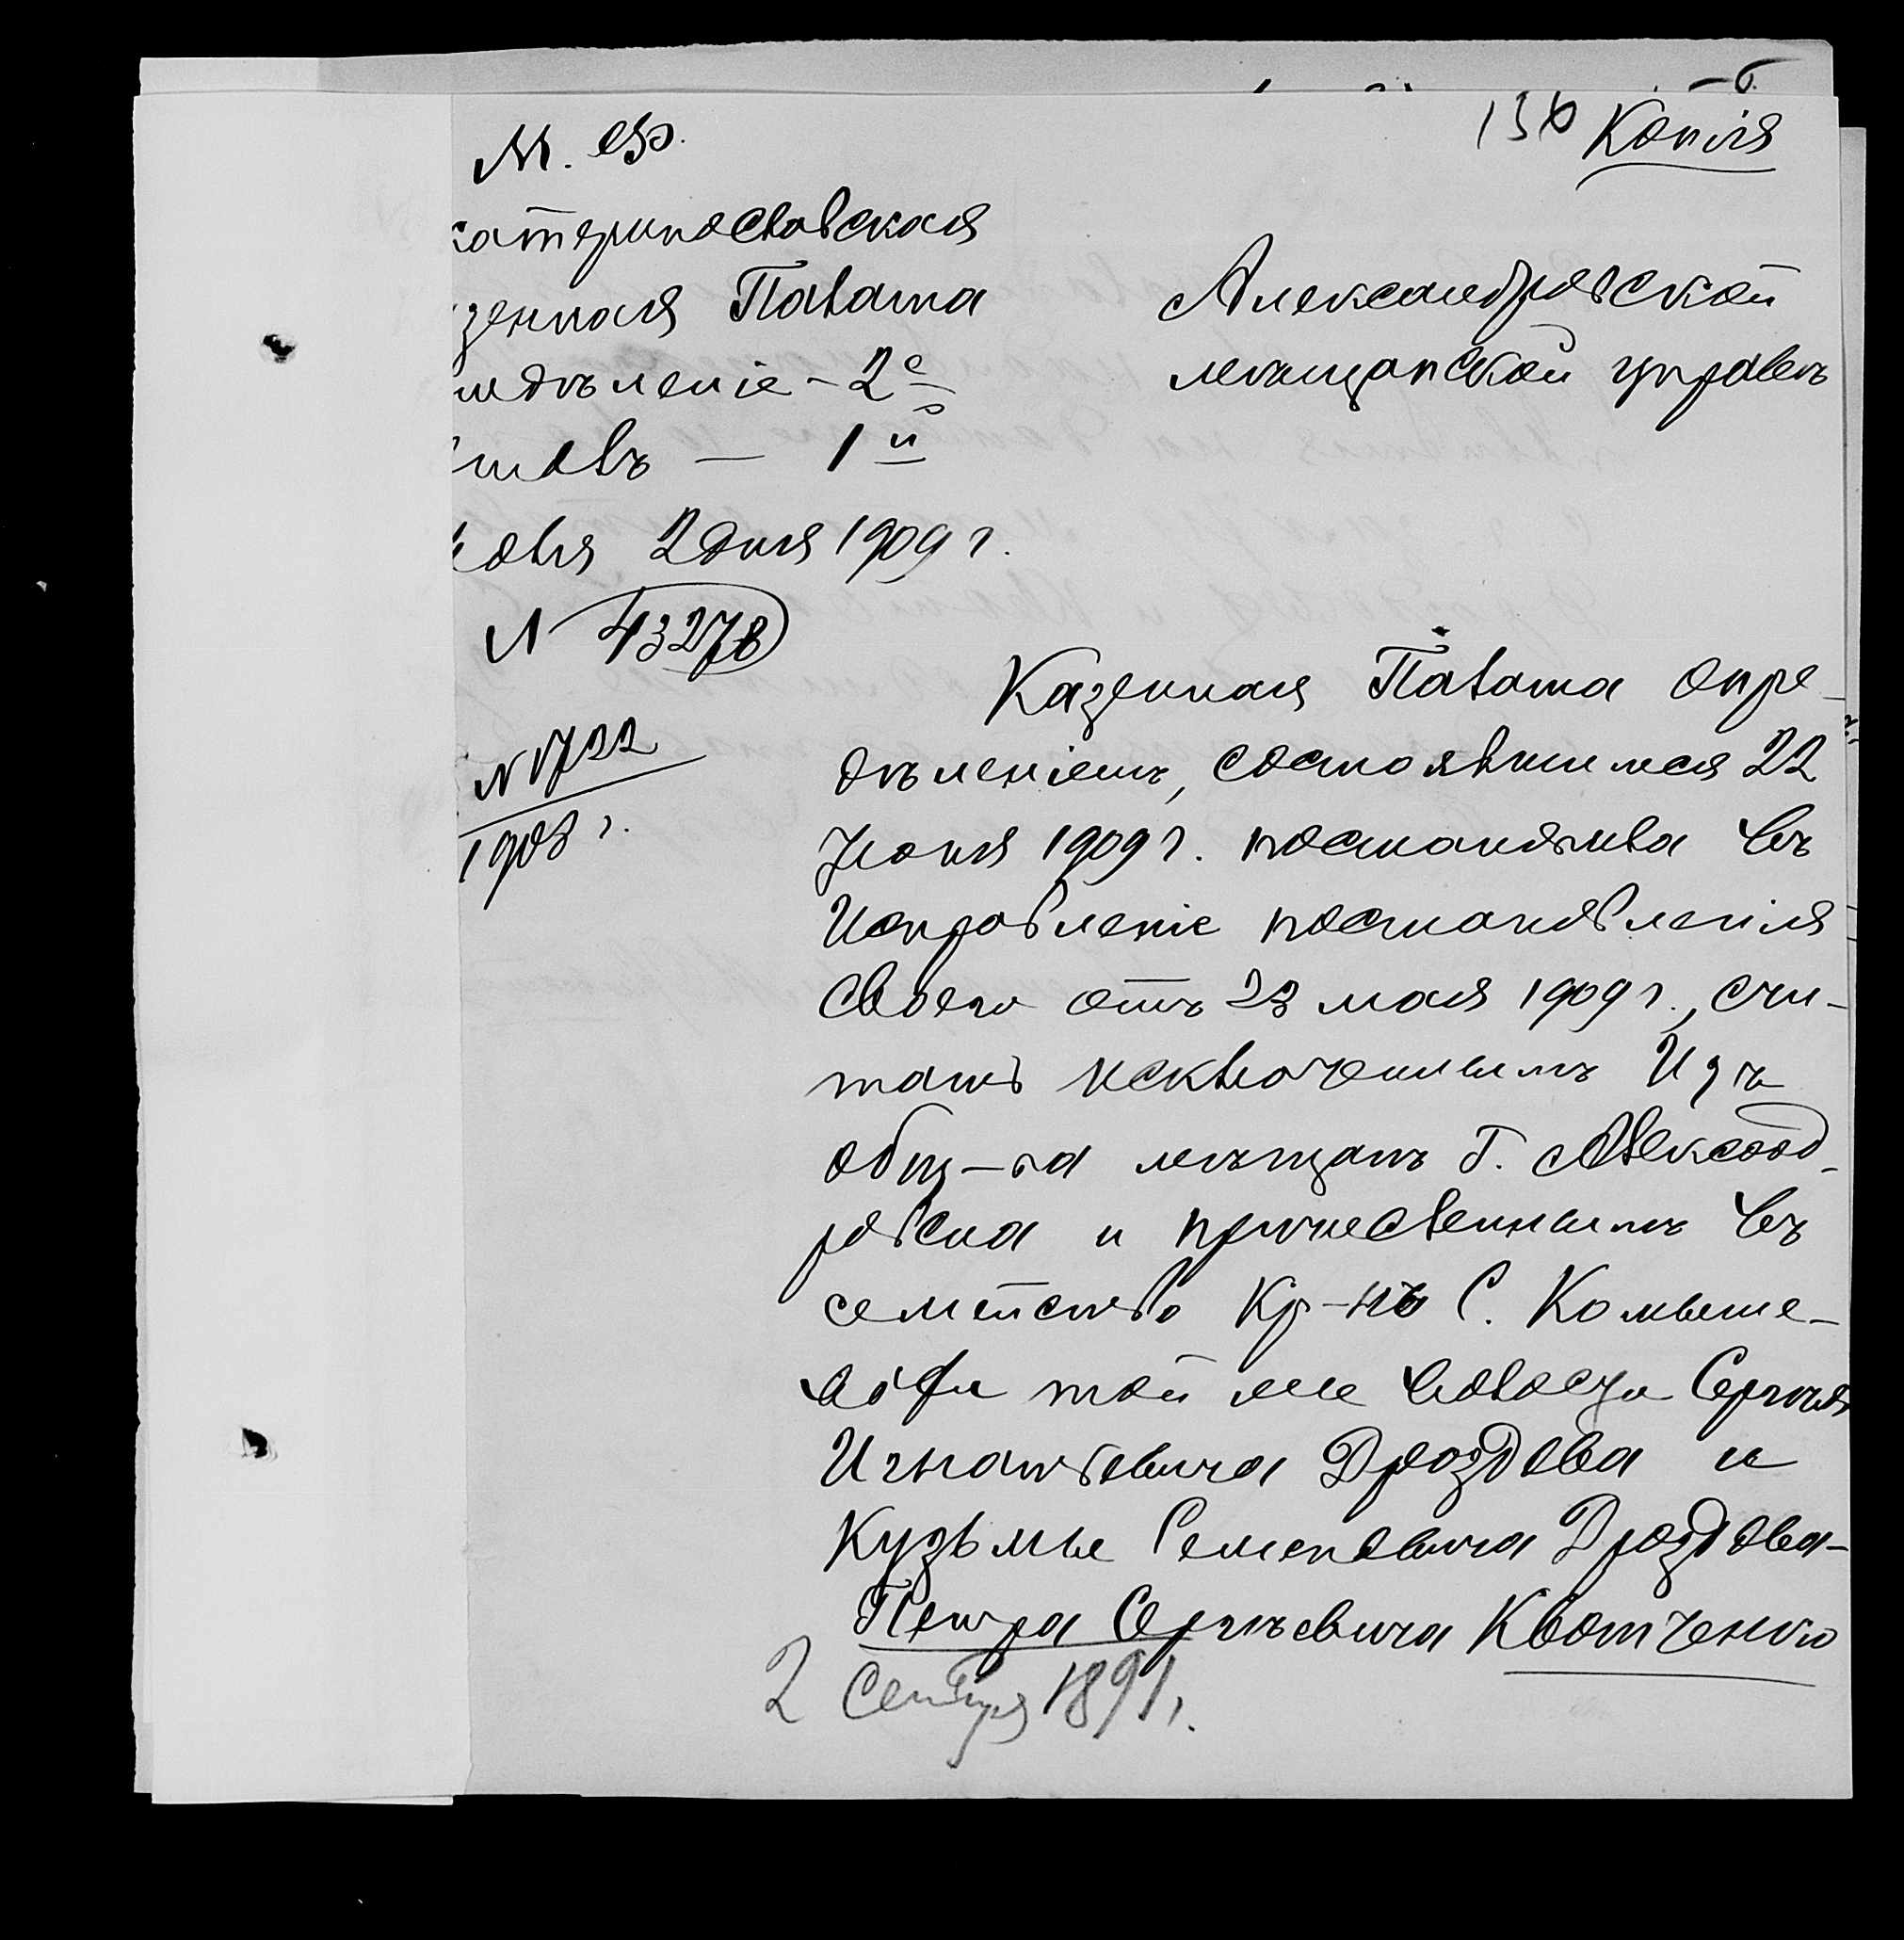 Копія
М. Ф.
катеринославская
зенная Палата
тдѣленіе - 2е
столъ — 1й
юля 2 дня 1909 г.
N 43278
N 1722
1908 г.
Александровской
мѣщанской управѣ
Казенная Палата опре-
дѣленіемъ, состоявшимся 22
Іюня 1909 г. постановила въ
Исправленіе постановленія
своего отъ 23 мая 1909 г., счи-
тать исключеннымъ Изъ
общ-ва мѣщанъ г. Александ-
ровска и причисленнымъ въ
семейство Кр-нъ С. Комыше-
вахи той же волости Сергѣя
Игнатьевича Дроздова и
Кузьмы Семеновича Дроздова-
Петра Сергѣевича Кватченко
2 Сентября 1891 г.